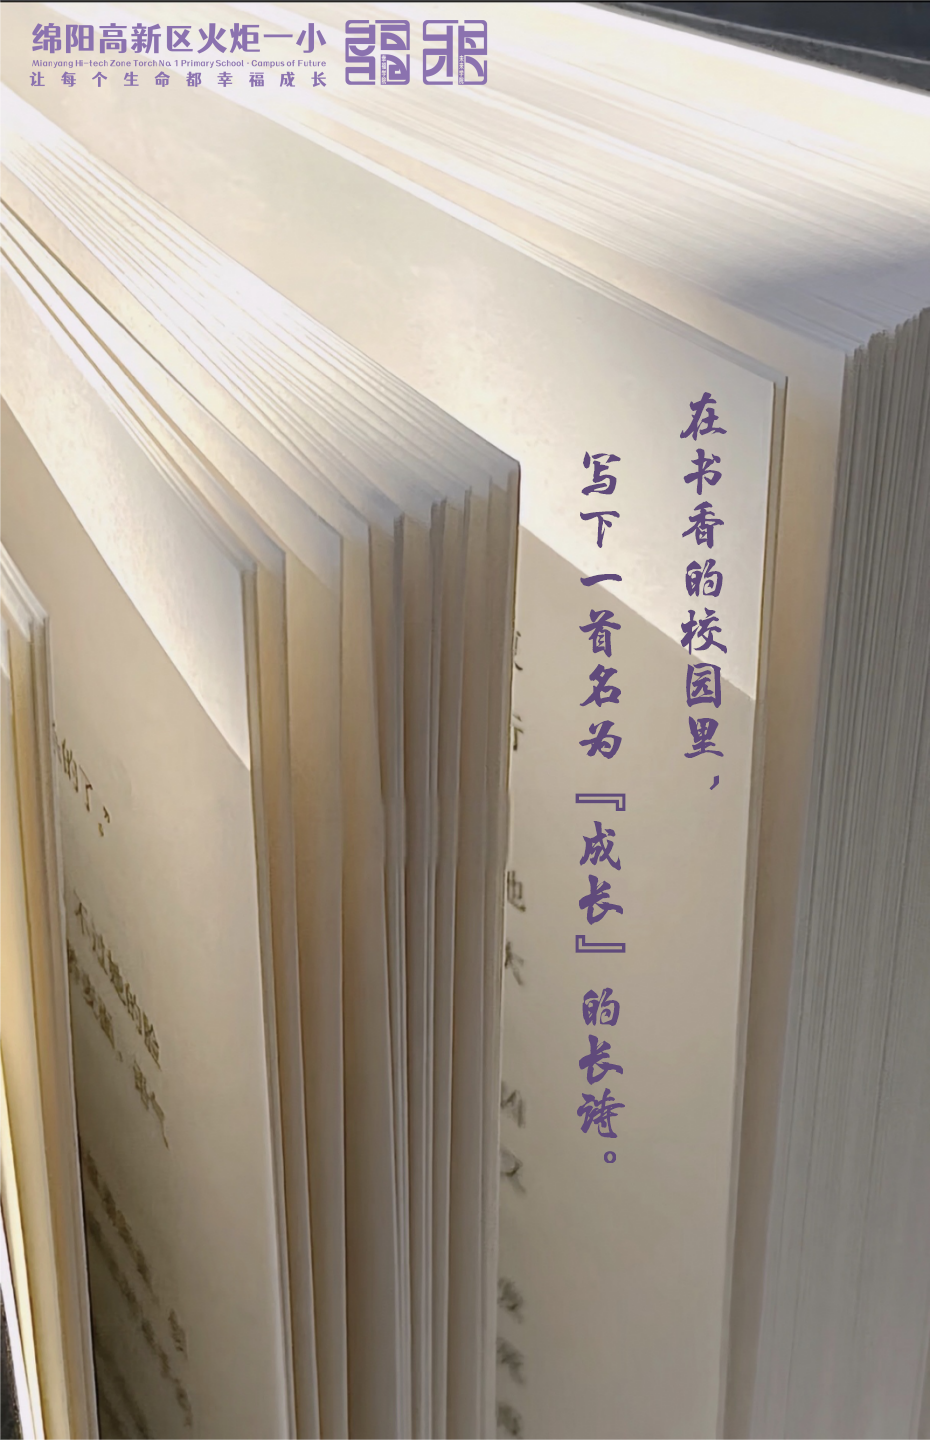 绵阳高新区火炬一小
Mianyang Hi-tech Zone Torch No. 1 Primary School · Campus of Future
让每个生命都幸福成长
在书香的校园里，
写下一首名为『成长』的长诗。
的了？